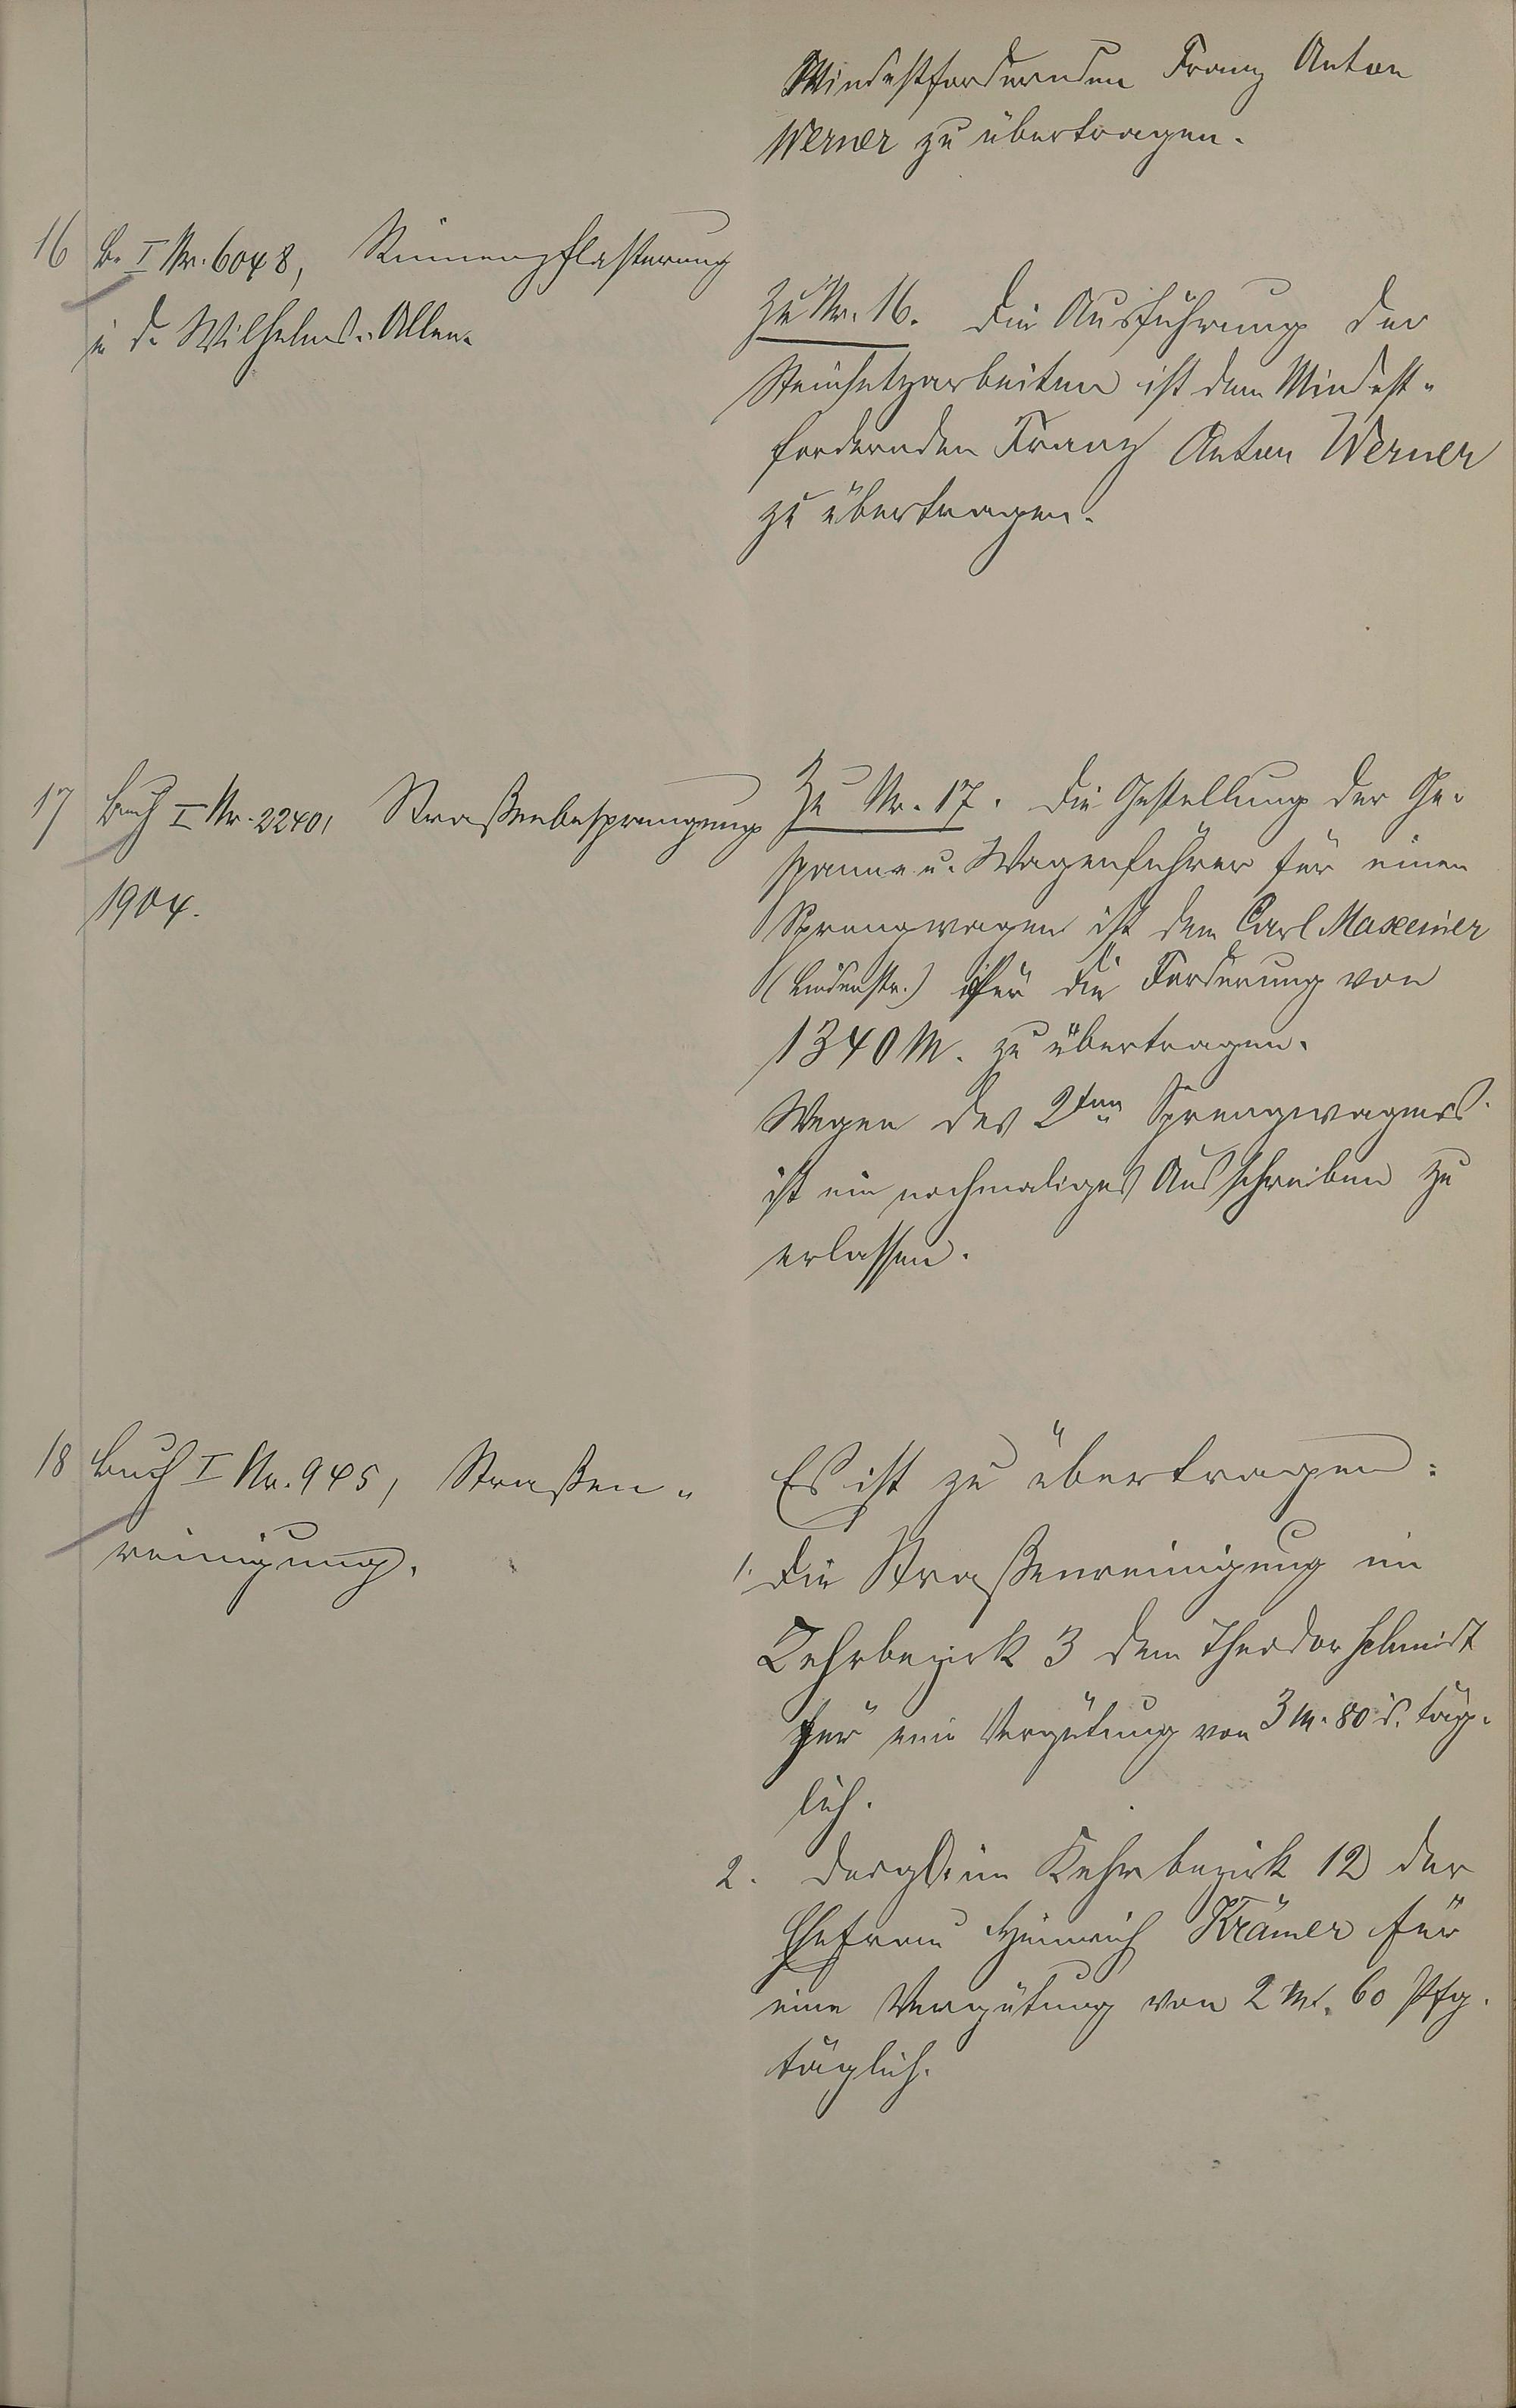 Mindestfordernden Franz Anton
Werner zu übertragen.
16 B. I Nr. 6048, Rinnenpflasterung
i. d. Wilhelms-Allee.
Zu Nr. 16. Die Ausführung der
Steinsetzarbeiten ist dem Mindest-
fordernden Franz Anton Werner
zu übertragen.
17 Buch I Nr. 2240, Straßenbesprengung
1904.
Zu Nr. 17. Die Gestellung der Ge-
spanne u. Wagenführer für einen
Sprengwagen ist dem Carl Maxeiner
(Lindenstr.) für die Forderung von
1340 M. zu übertragen.
Wegen des 2ten Sprengwagens
ist ein nochmaliges Ausschreiben zu
erlassen.
18 Buch I Nr. 945, Straßen-
reinigung.
Es ist zu übertragen:
1. Die Straßenreinigung im
Kehrbezirk 3 dem Theodor Schmidt
für eine Vergütung von 3 M. 80 täg-
lich.
2. desgl. im Kehrbezirk 12 der
Ehefrau Heinrich Krämer für
eine Vergütung von 2 M. 60 Pfg.
täglich.